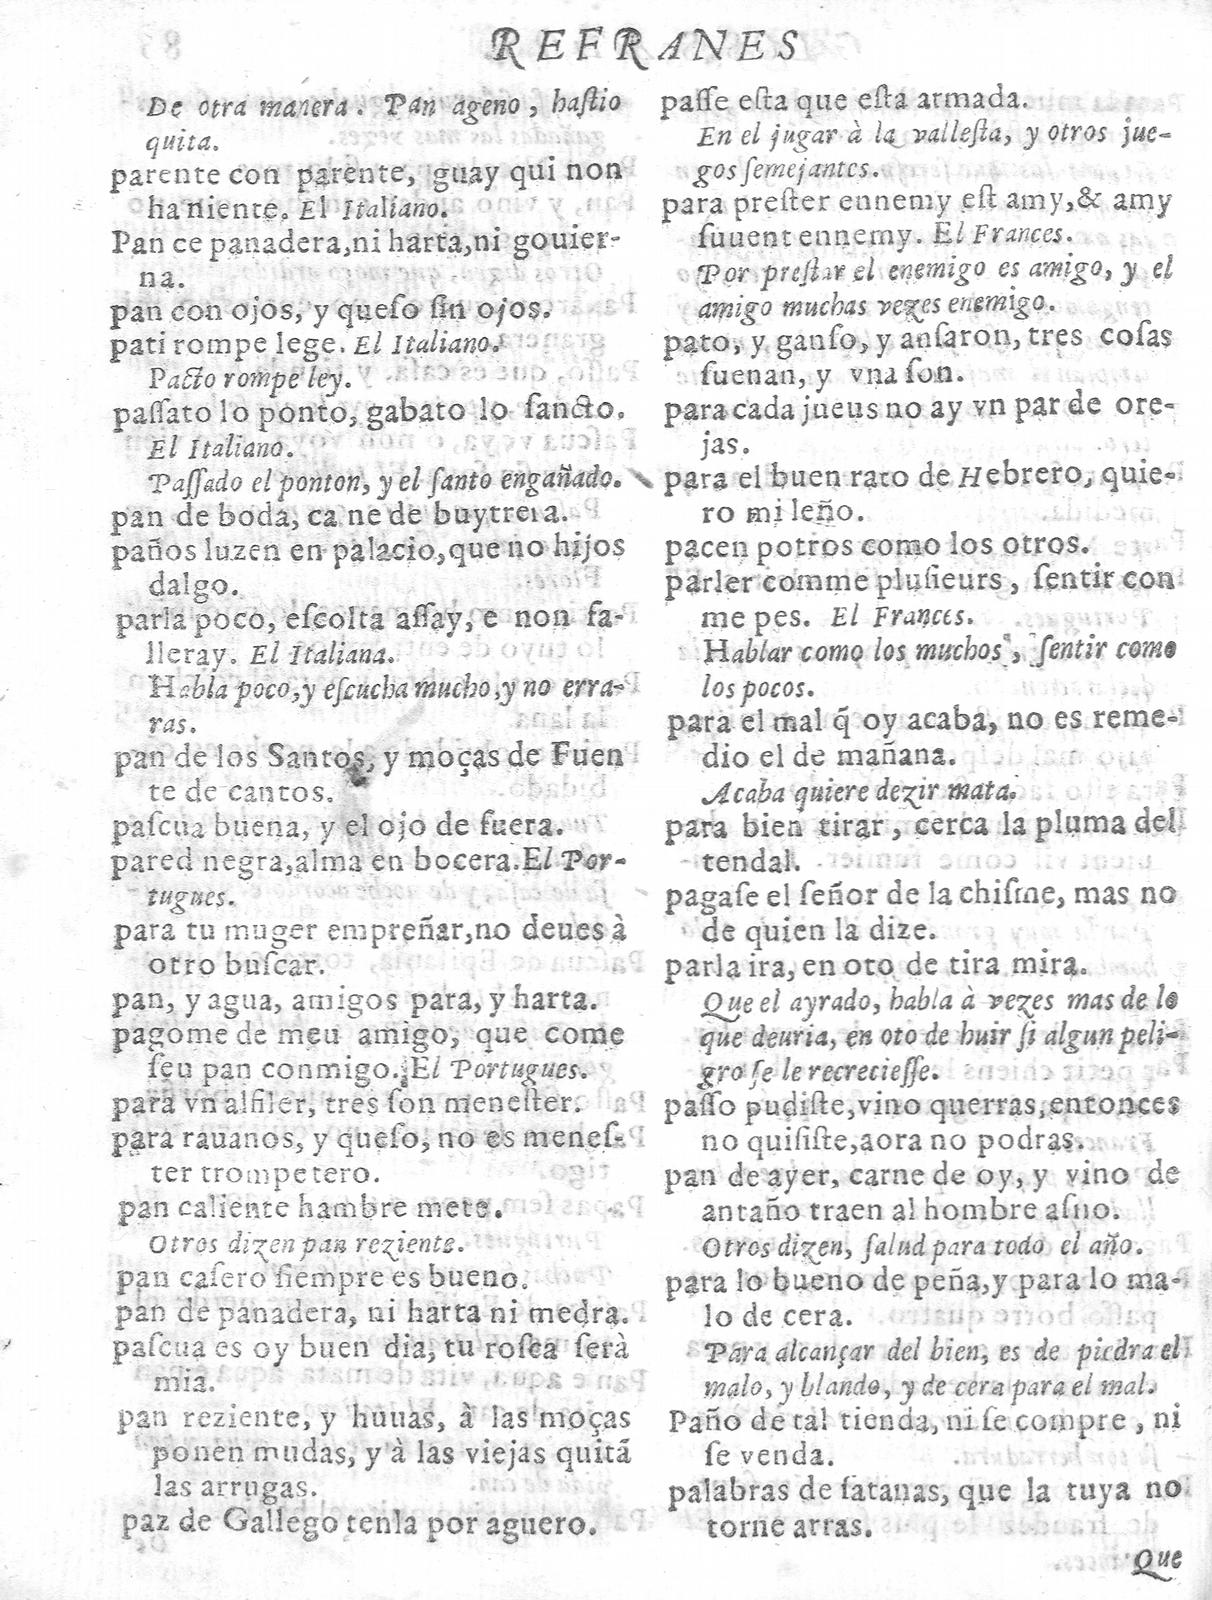 REFRANES
De otra manera. Pan ageno, haſtio
quita.
parente con parente, guay qui non
ha niente. El Italiano.
Pan ce panadera, ni harta, ni gouier-
na.
pan con ojos, y queſo ſin ojos.
pati rompe lege. El Italiano.
Pacto rompe ley.
paſſato lo ponto, gabato lo ſancto.
El Italiano.
Paſſado el ponton, y el ſanto engañado.
pan de boda, ca ne de buytrera.
paños luzen en palacio, que no hijos
dalgo.
parla poco, eſcolta aſſay, e non fa-
lleray. El Italiana.
Habla poco, y eſcucha mucho, y no erra-
ras.
pan de los Santos, y moças de Fuen
te de cantos.
paſcua buena, y el ojo de fuera.
pared negra, alma en bocera. El Por-
tugues.
para tu muger empreñar, no deues à
otro buſcar.
pan, y agua, amigos para, y harta.
pagome de meu amigo, que come
ſeu pan conmigo. El Portugues.
para vn alfiler, tres ſon meneſter.
para rauanos, y queſo, no es meneſ-
ter trompetero.
pan caliente hambre mete.
Otros dizen pan reziente.
pan caſero ſiempre es bueno.
pan de panadera, ni harta ni medra.
paſcua es oy buen dia, tu roſca ſerà
mia.
pan reziente, y huuas, à las moças
ponen mudas, y à las viejas quitã
las arrugas.
paz de Gallego tenla por aguero.
paſſe eſta que eſta armada.
En el jugar à la valleſta, y otros jue-
gos ſemejantes.
para preſter ennemy eſt amy, & amy
ſuuent ennemy. El Frances.
Por preſtar el enemigo es amigo, y el
amigo muchas vezes enemigo.
pato, y ganſo, y anſaron, tres coſas
ſuenan, y vna ſon.
para cada jueus no ay vn par de ore-
jas.
para el buen rato de Hebrero, quie-
ro mi leño.
pacen potros como los otros.
parler comme pluſieurs, ſentir con
me pes. El Frances.
Hablar como los muchos, ſentir como
los pocos.
para el mal q̃ oy acaba, no es reme-
dio el de mañana.
Acaba quiere dezir mata.
para bien tirar, cerca la pluma del
tendal.
pagaſe el ſeñor de la chiſme, mas no
de quien la dize.
parla ira, en oto de tira mira.
Que el ayrado, habla à vezes mas de lo
que deuria, en oto de huir ſi algun peli-
gro ſe le recrecieſſe.
paſſo pudiſte, vino querras, entonces
no quiſiſte, aora no podras.
pan de ayer, carne de oy, y vino de
antaño traen al hombre aſno.
Otros dizen, ſalud para todo el año.
para lo bueno de peña, y para lo ma-
lo de cera.
Para alcançar del bien, es de piedra el
malo, y blando, y de cera para el mal.
Paño de tal tienda, ni ſe compre, ni
ſe venda.
palabras de ſatanas, que la tuya no
torne arras.
Que